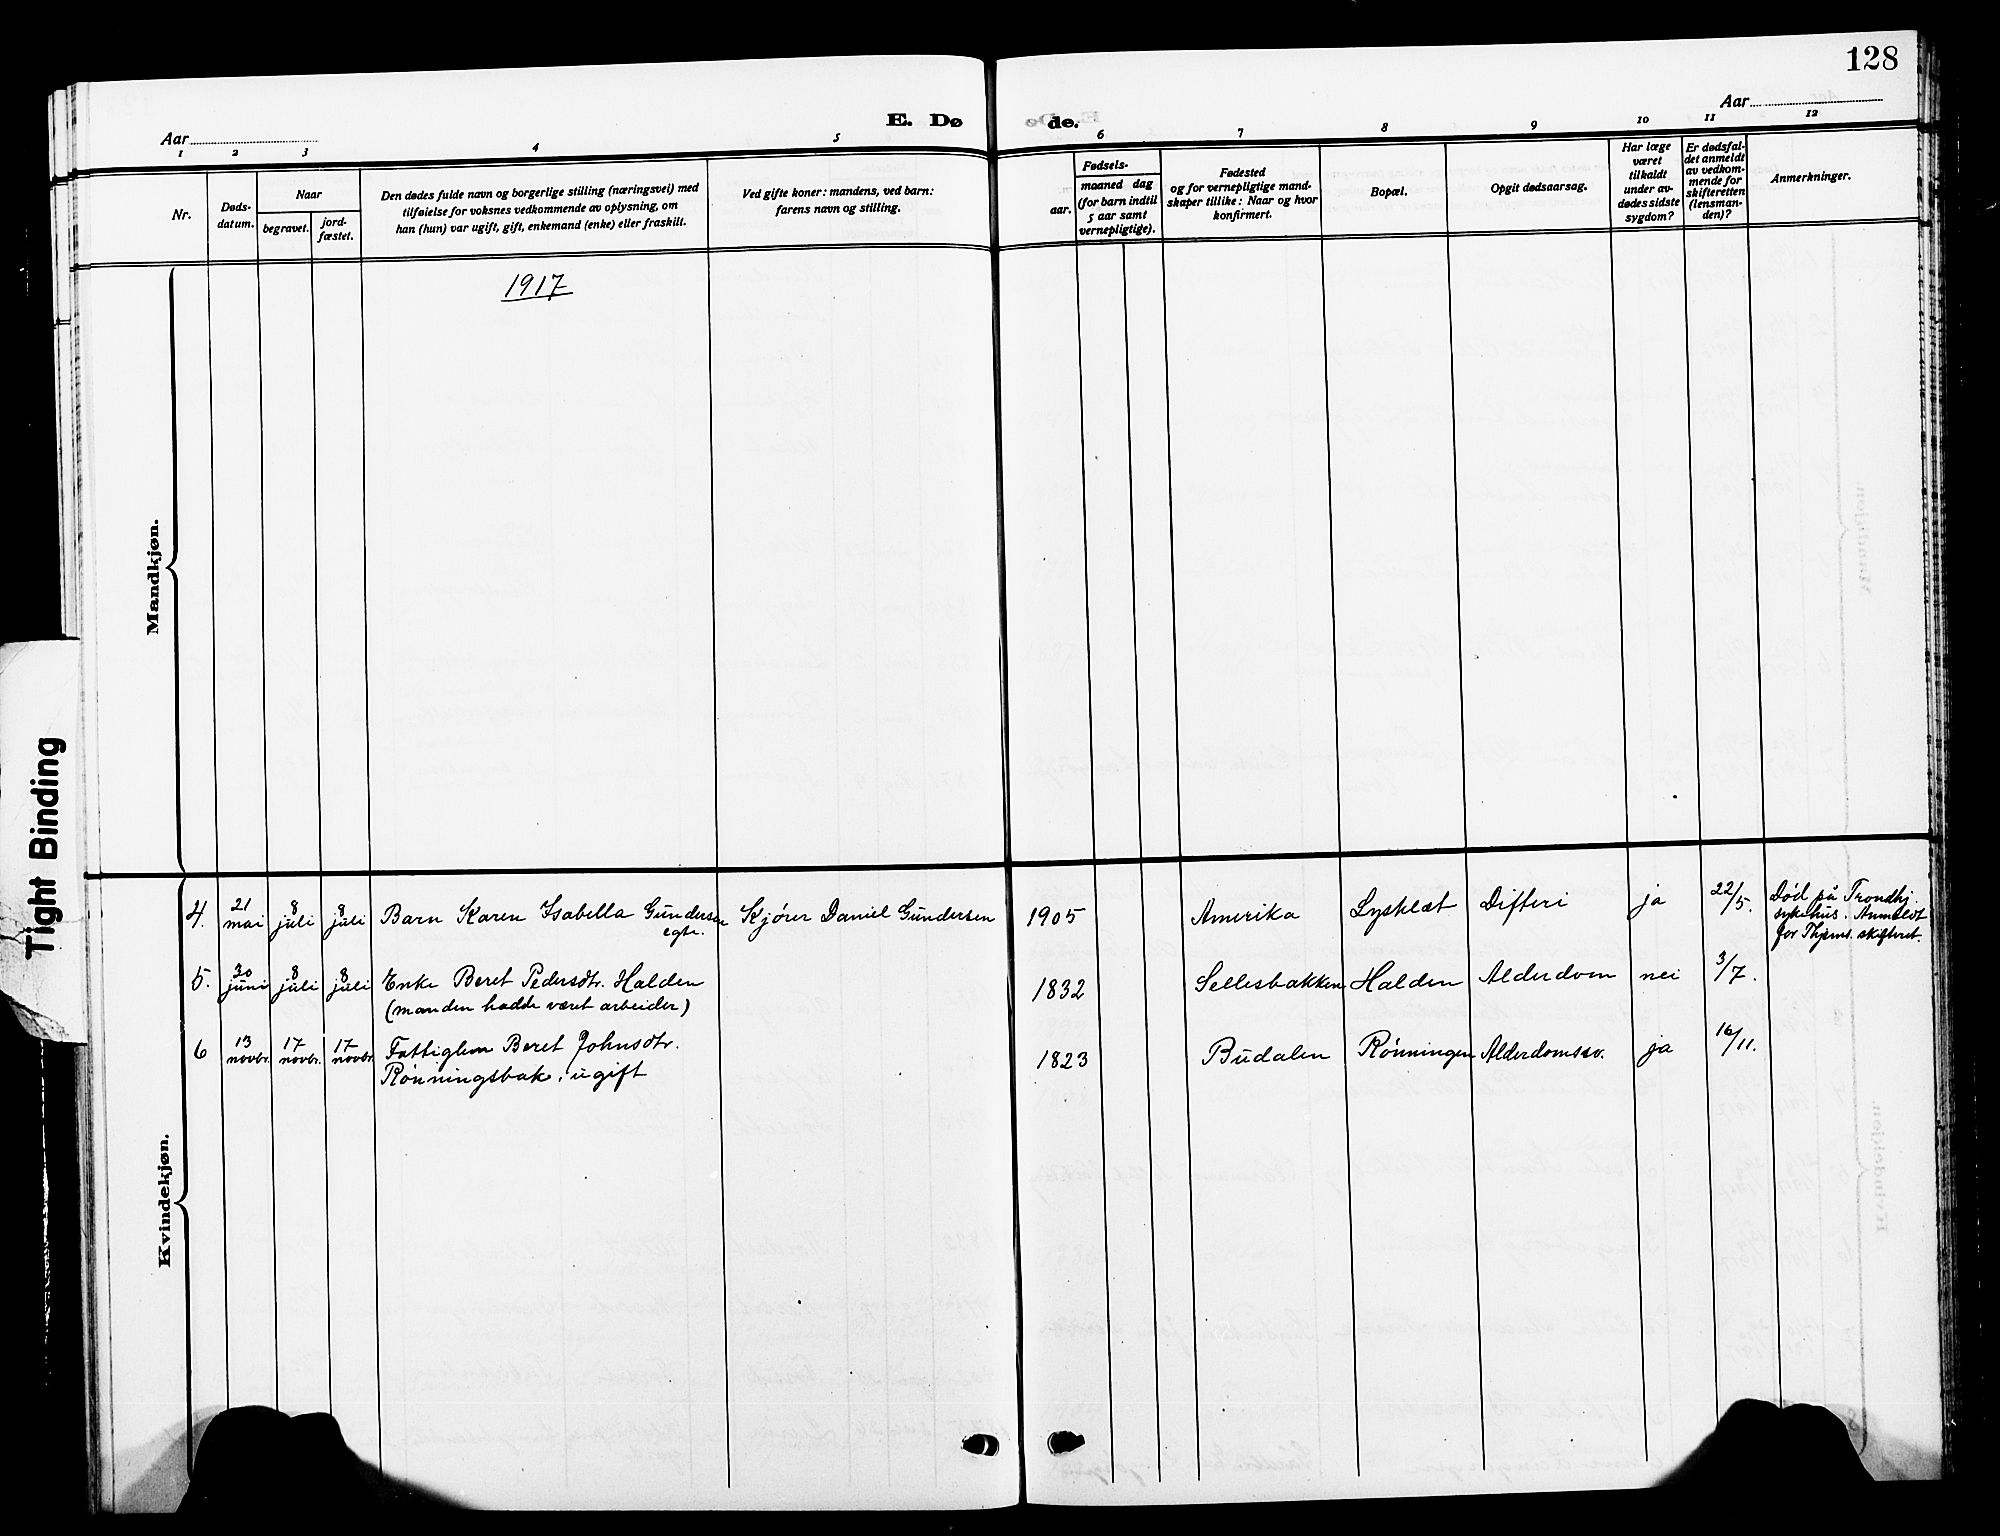 128
Aar
Aar
E. Dø
de.
1 2 3 4 5 6 7 8 9 10 11 12
Nr.
Døds-
datum.
Naar
begravet.
jord-
fæstet.
Den dødes fulde navn og borgerlige stilling (næringsvei) med
tilføielse for voksnes vedkommende av oplysning, om
han (hun) var ugift, gift, enkemand (enke) eller fraskilt.
Ved gifte koner: mandens, ved barn:
farens navn og stilling.
Fødsels-
aar.
maaned dag
(for barn indtil
5 aar samt
vernepligtige).
Fødested
og for vernepligtige mand-
skaper tillike: Naar og hvor
konfirmert.
Bopæl.
Opgit dødsaarsag.
Har læge
været
tilkaldt
under av-
dødes sidste
sygdom?
Er dødsfal-
det anmeldt
av vedkom-
mende for
skifteretten
(lensman-
den)?
Anmerkninger.
1917
Mandkjøn.
Kvindekjøn.
Tight Binding
4. 21 mai 8 juli 8 juli Barn Karen Isabella Gundersen Kjører Daniel Gundersen 1905 Amerika Lysklæt Difteri ja 22/5. Død på Trondhj.
egte. sykehus. Anmeldt
for Thjems. skifteret.
5. 30 juni 8 juli 8 juli Enke Beret Pedersdtr. Halden 1832 Sellesbakken Halden Alderdom nei 3/7.
(manden hadde været arbeider)
6 13 novbr. 17 novbr. 17 novbr. Fattiglem Beret Johnsdtr. 1823 Budalen Rönningen Alderdomssv. ja 16/11.
Rönningsbak, ugift